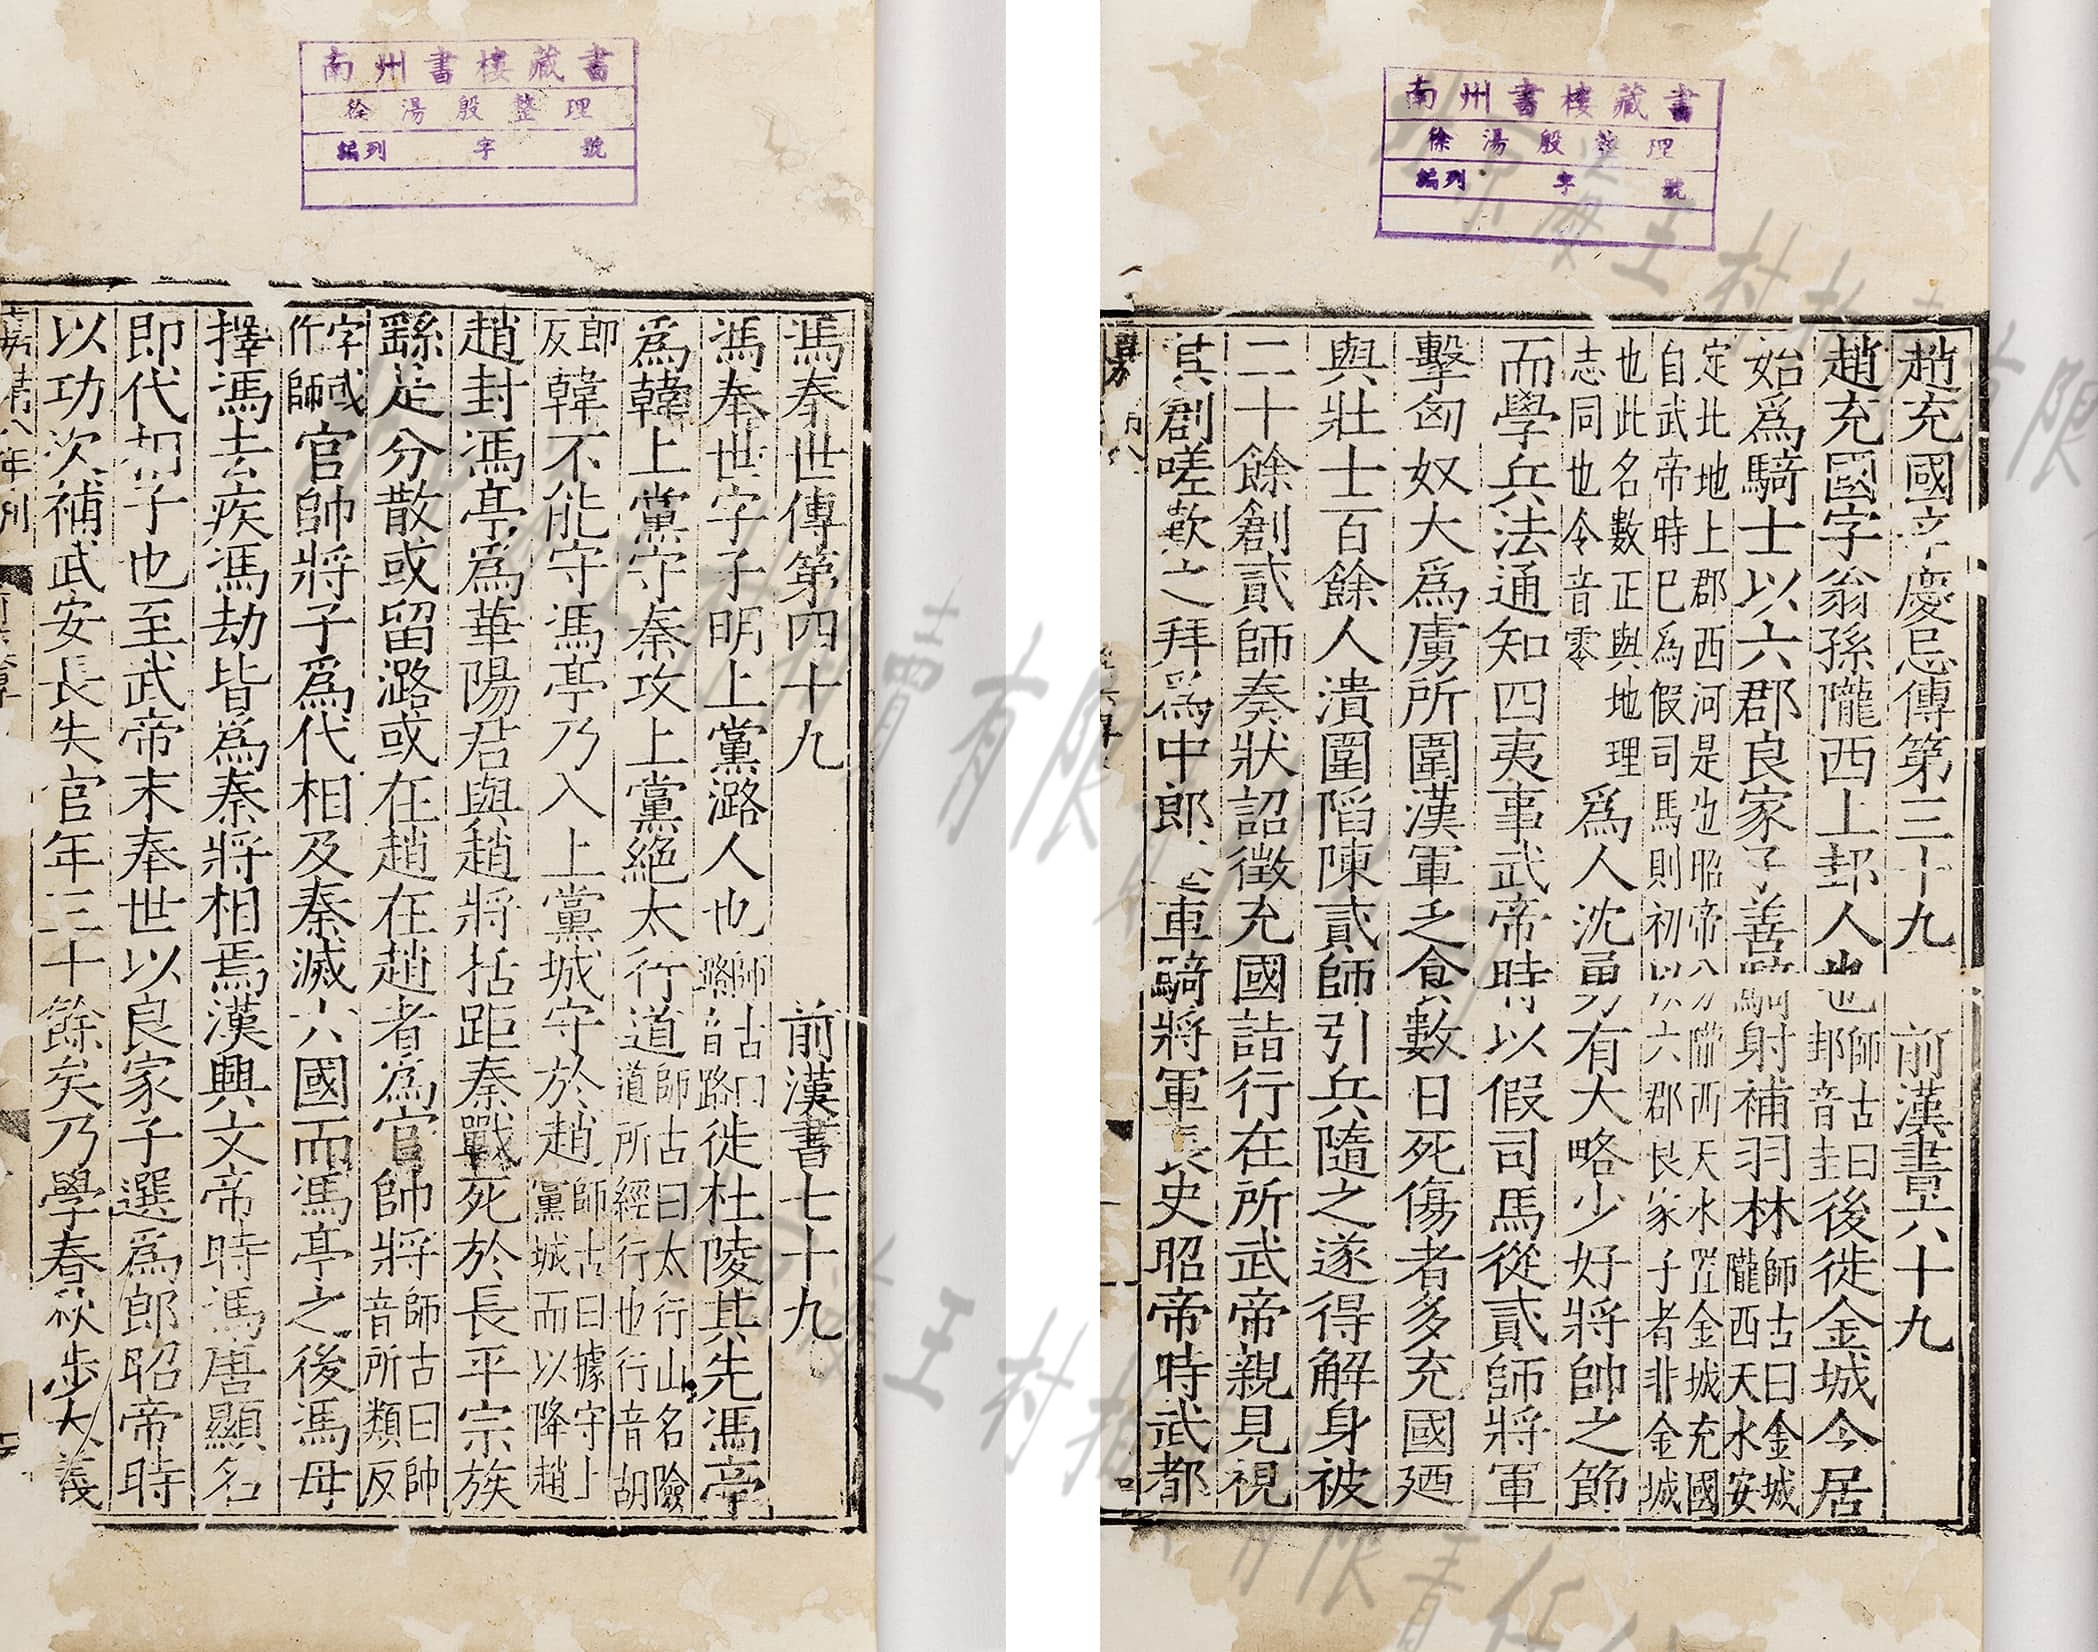 南州書樓藏書
徐湯殷整理
編列 字 號
馮奉世傳第四十九 前漢書七十九
馮奉世字子明上黨潞人也師古曰潞音路徙杜陵其先馮亭
爲韓上黨守秦攻上黨絕太行道師古曰太行山名險道所經行也行音胡
郎反韓不能守馮亭乃入上黨城守於趙師古曰據守上黨城而以降趙
趙封馮亭爲華陽君與趙將括距秦戰死於長平宗族
繇是分散或留潞或在趙在趙者爲官帥將師古曰帥音所類反
字或作師官帥將子爲代相及秦滅六國而馮亭之後馮毋
擇馮去疾馮劫皆爲秦將相焉漢興文帝時馮唐顯名
即代相子也至武帝末奉世以良家子選爲郎昭帝時
以功次補武安長失官年三十餘矣乃學春秋涉大義
嘉靖八年刊
南州書樓藏書
徐湯殷整理
編列 字 號
趙充國辛慶忌傳第三十九 前漢書六十九
趙充國字翁孫隴西上邽人也師古曰邽音圭後徙金城令居
始爲騎士以六郡良家子善騎射補羽林師古曰金城隴西天水安
定北地上郡西河是也昭帝分隴西天水置金城充國自武帝時已爲假司馬則初以六郡良家子者非金城
也此名數正與地理志同也令音零爲人沈勇有大略少好將帥之節
而學兵法通知四夷事武帝時以假司馬從貳師將軍
擊匈奴大爲虜所圍漢軍乏食數日死傷者多充國廼
與壯士百餘人潰圍陷陳貳師引兵隨之遂得解身被
二十餘創貳師奏狀詔徵充國詣行在所武帝親見視
其創嗟歎之拜爲中郎遷車騎將軍長史昭帝時武都